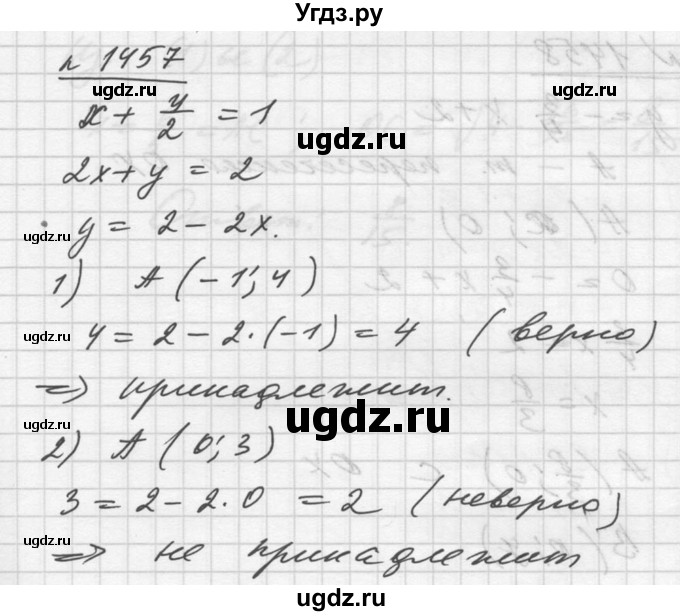 Угдз.ру
n 1457
ugdz.ru
ugdz.ru
x + y/2 = 1
ugdz.ru
ugdz.ru
2x + y = 2
y = 2 - 2x.
ugdz.ru
ugdz.ru
1) A (-1; 4)
4 = 2 - 2·(-1) = 4 (верно)
ugdz.ru
ugdz.ru
=> принадлежит.
ugdz.ru
ugdz.ru
2) A (0; 3)
3 = 2 - 2·0 = 2 (неверно)
ugdz.ru
ugdz.ru
=> не принадлежит
ugdz.ru